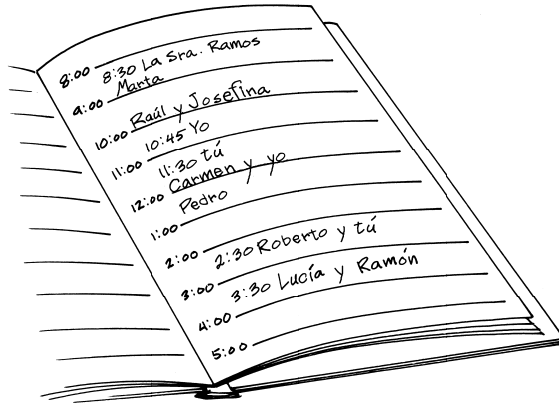 8:00
8:30 La Sra. Ramos
9:00 Marta
10:00 Raúl y Josefina
10:45 Yo
11:00
11:30 tú
12:00 Carmen y yo
1:00 Pedro
2:00
2:30 Roberto y tú
3:00
3:30 Lucía y Ramón
4:00
5:00